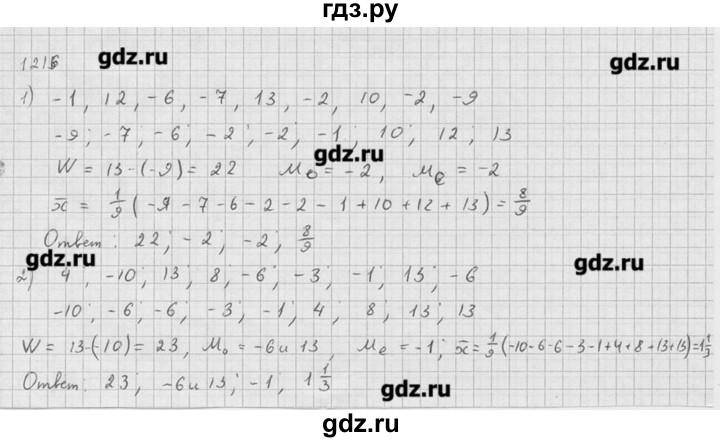 гдз.ру
gdz.ru gdz.ru
1216
1) -1, 12, -6, -7, 13, -2, 10, -2, -9
-9; -7; -6; -2; -2; -1; 10; 12; 13
gdz.ru
W = 13-(-9) = 22 Mo = -2, Me = -2
x̅ = 1/9 (-9 -7 -6 -2 -2 -1 +10 +12 +13) = 8/9
Ответ: 22; -2; -2; 8/9
gdz.ru gdz.ru
2) 4; -10; 13; 8; -6; -3; -1; 13; -6
-10; -6; -6; -3; -1; 4; 8; 13; 13
W = 13-(10) = 23, Mo = -6 и 13, Me = -1; x̅ = 1/9 (-10-6-6-3-1+4+8+13+13) = 1 1/3
Ответ: 23; -6 и 13; -1; 1 1/3
gdz.ru
gdz.ru